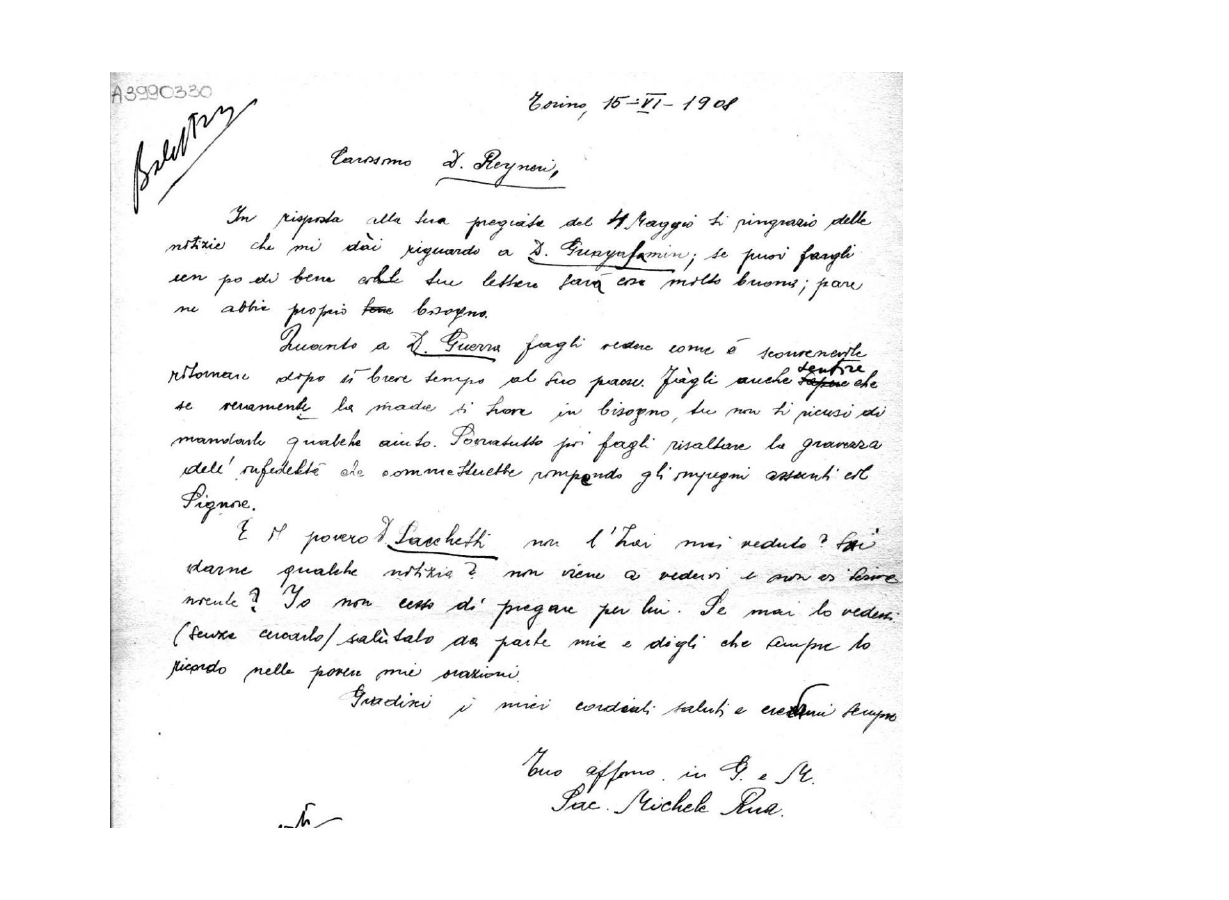 A3990330
Torino, 15-VI-1908
Carissimo D. Reyneri,
In risposta alla tua pregiata del 4 Maggio ti ringrazio delle
notizie che mi dài riguardo a D. se puoi fargli
un po di bene colle tue lettere sarà cosa molto buona; pare
ne abbia proprio bisogno.
Quanto a D. Guerra fagli vedere come è sconveniente
ritornare dopo sì breve tempo al suo paese. Fagli anche sentire che
se veramente la madre si trova in bisogno, tu non ti ricusi di
mandarle qualche aiuto. Sovratutto poi fagli risaltare la gravezza
dell' infedeltà che commetterebbe rompendo gli impegni assunti col
Signore.
E il povero D. Sacchetti non l'hai mai veduto? Sai
darne qualche notizia? non viene a vedervi e non vi scrive
Io non cesso di pregare per lui. Se mai lo vedessi
(senza cercarlo) salutalo da parte mia e digli che sempre lo
ricordo nelle povere mie orazioni.
Gradisci i miei cordiali saluti e credimi sempre
Tuo affmo. in G. e M.
Sac. Michele Rua.